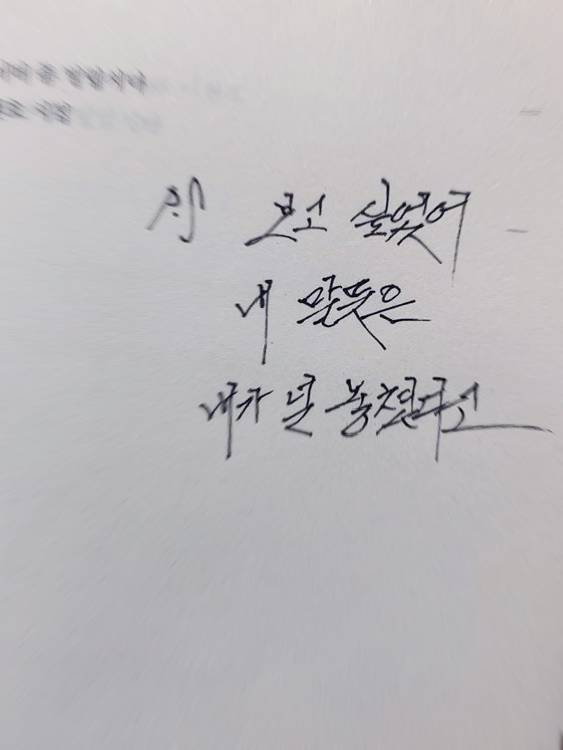 보고 싶었어
내 말뜻은
내가 널 놓쳤다고